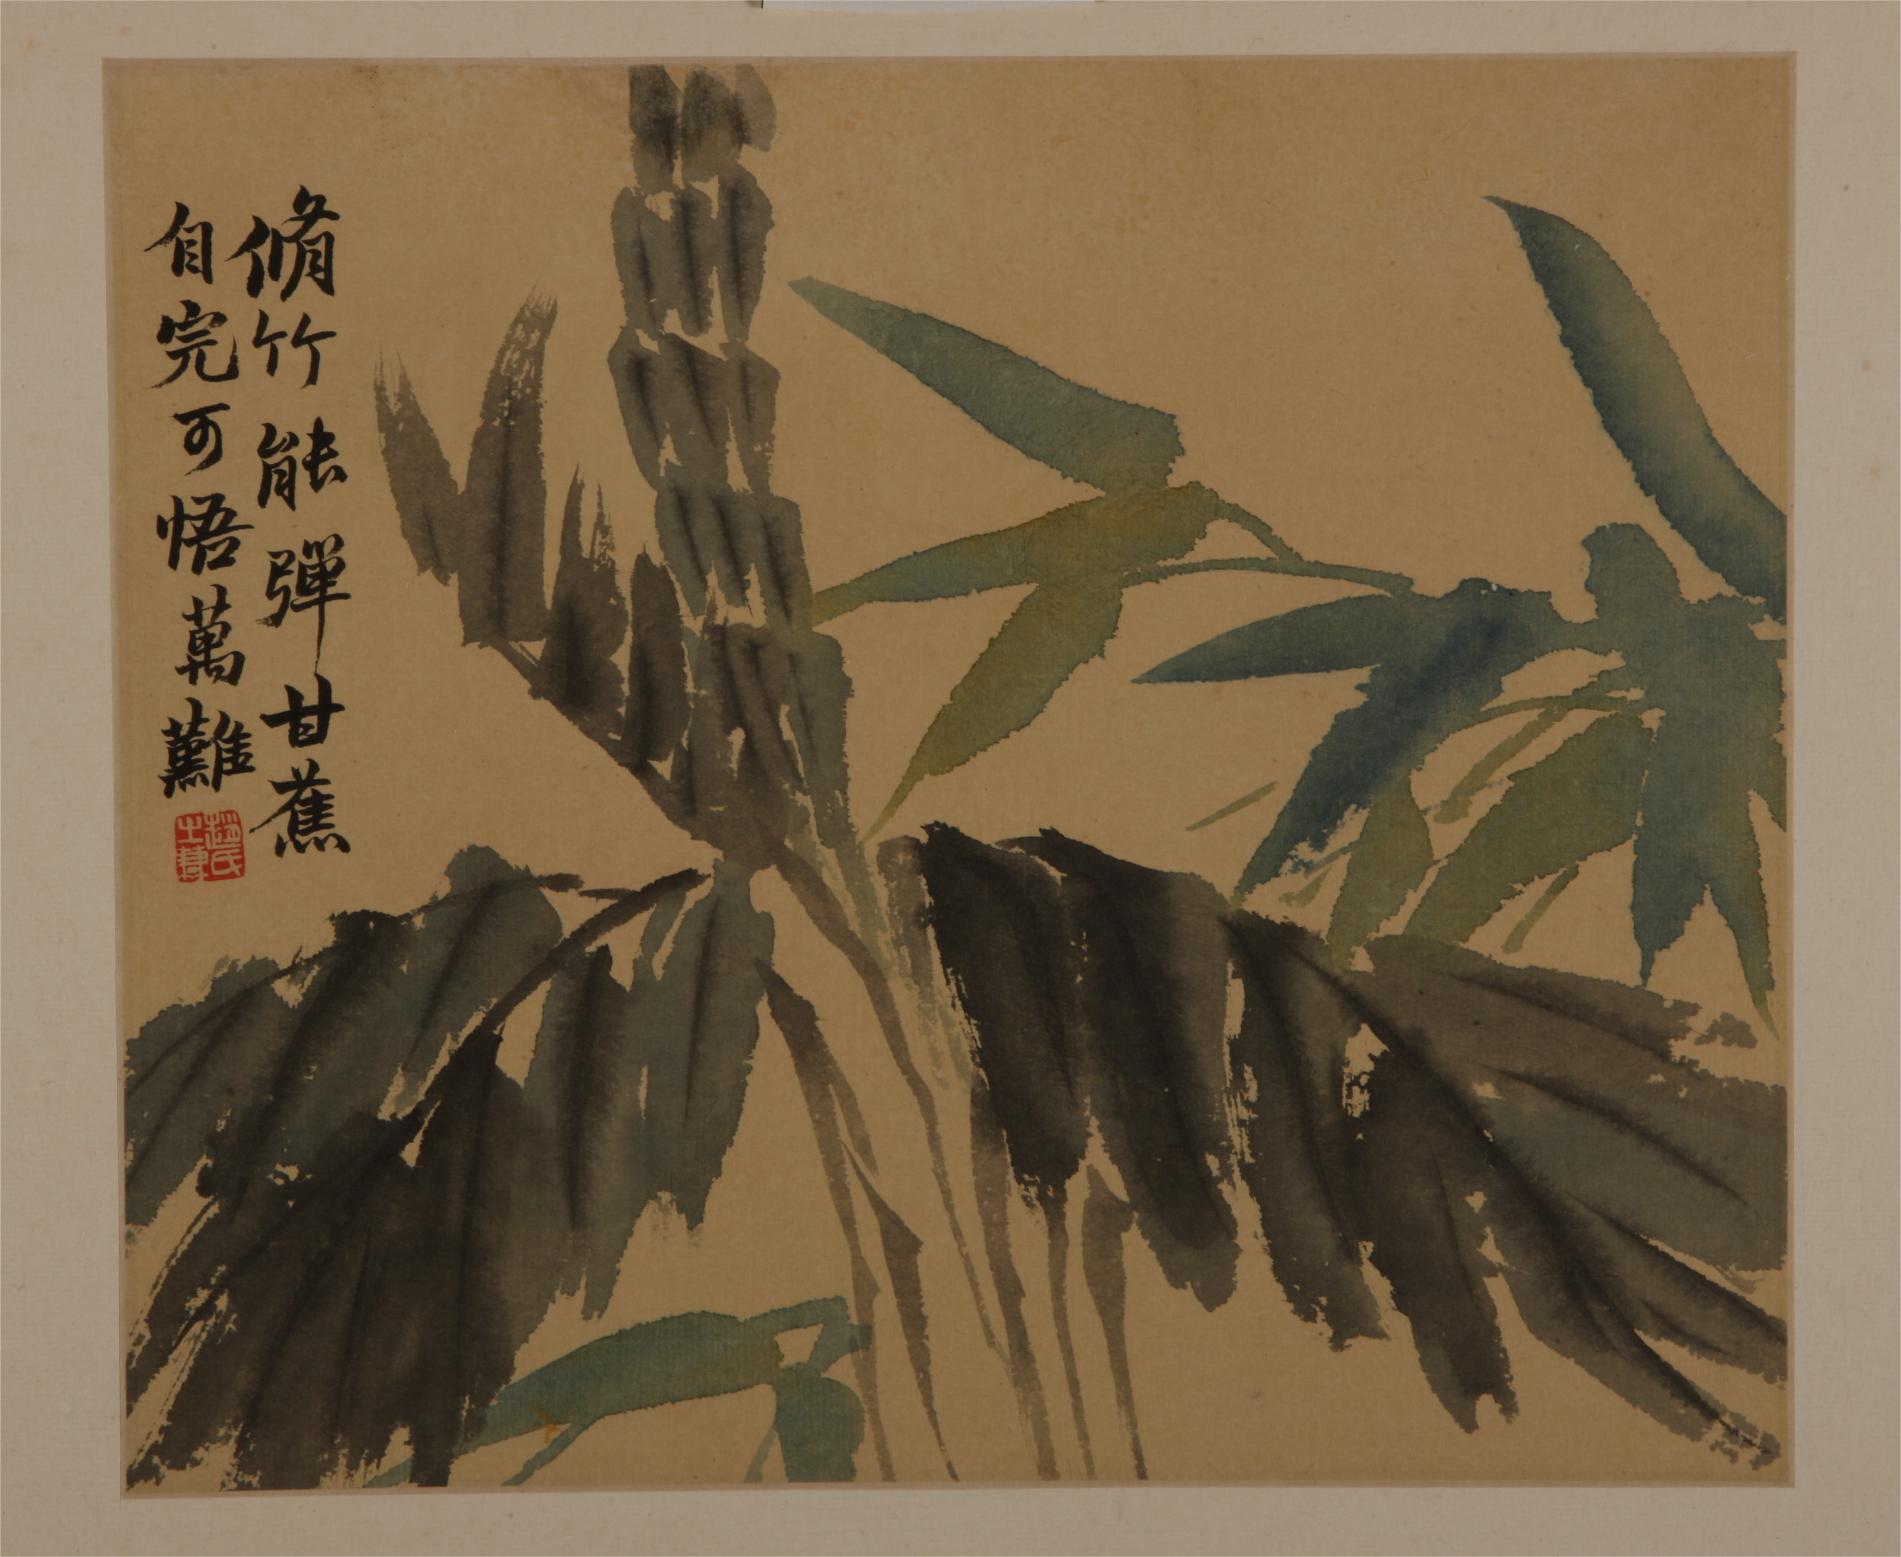 脩竹能彈甘蕉
自完可悟萬難
趙氏
之謙